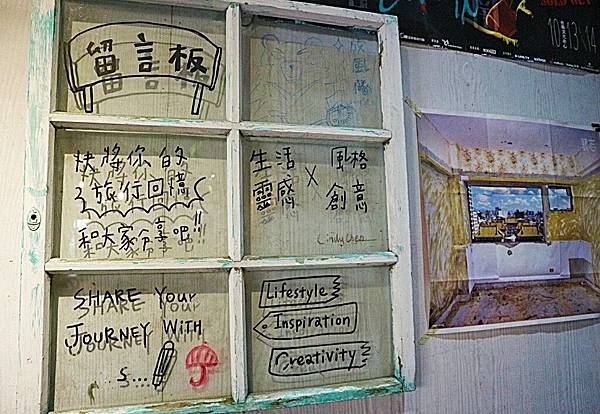 留言板
旅風
快將你的
旅行回憶
和大家分享吧!!
生活 風格
X
靈感 創意
Cindy Chen
SHARE YOUR
JOURNEY WITH
Lifestyle
Inspiration
Creativity
10.13 14